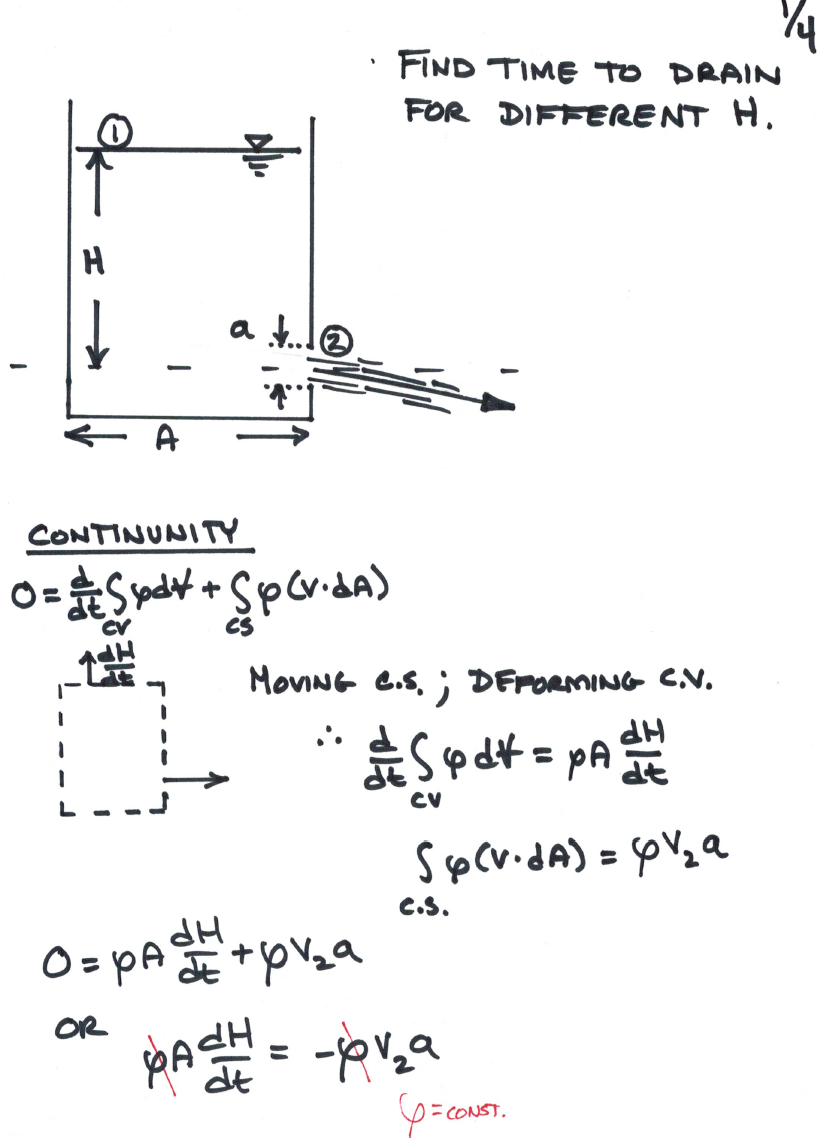 1/4
FIND TIME TO DRAIN
FOR DIFFERENT H.
①
H
a
②
A
CONTINUNITY
0 = d/dt ∫ρdV̶ + ∫ρ(V·dA)
CV CS
dH/dt
MOVING C.S. ; DEFORMING C.V.
∴ d/dt ∫ρdV̶ = ρA dH/dt
CV
∫ρ(V·dA) = ρV₂a
C.S.
0 = ρA dH/dt + ρV₂a
OR
ρA dH/dt = -ρV₂a
ρ = CONST.